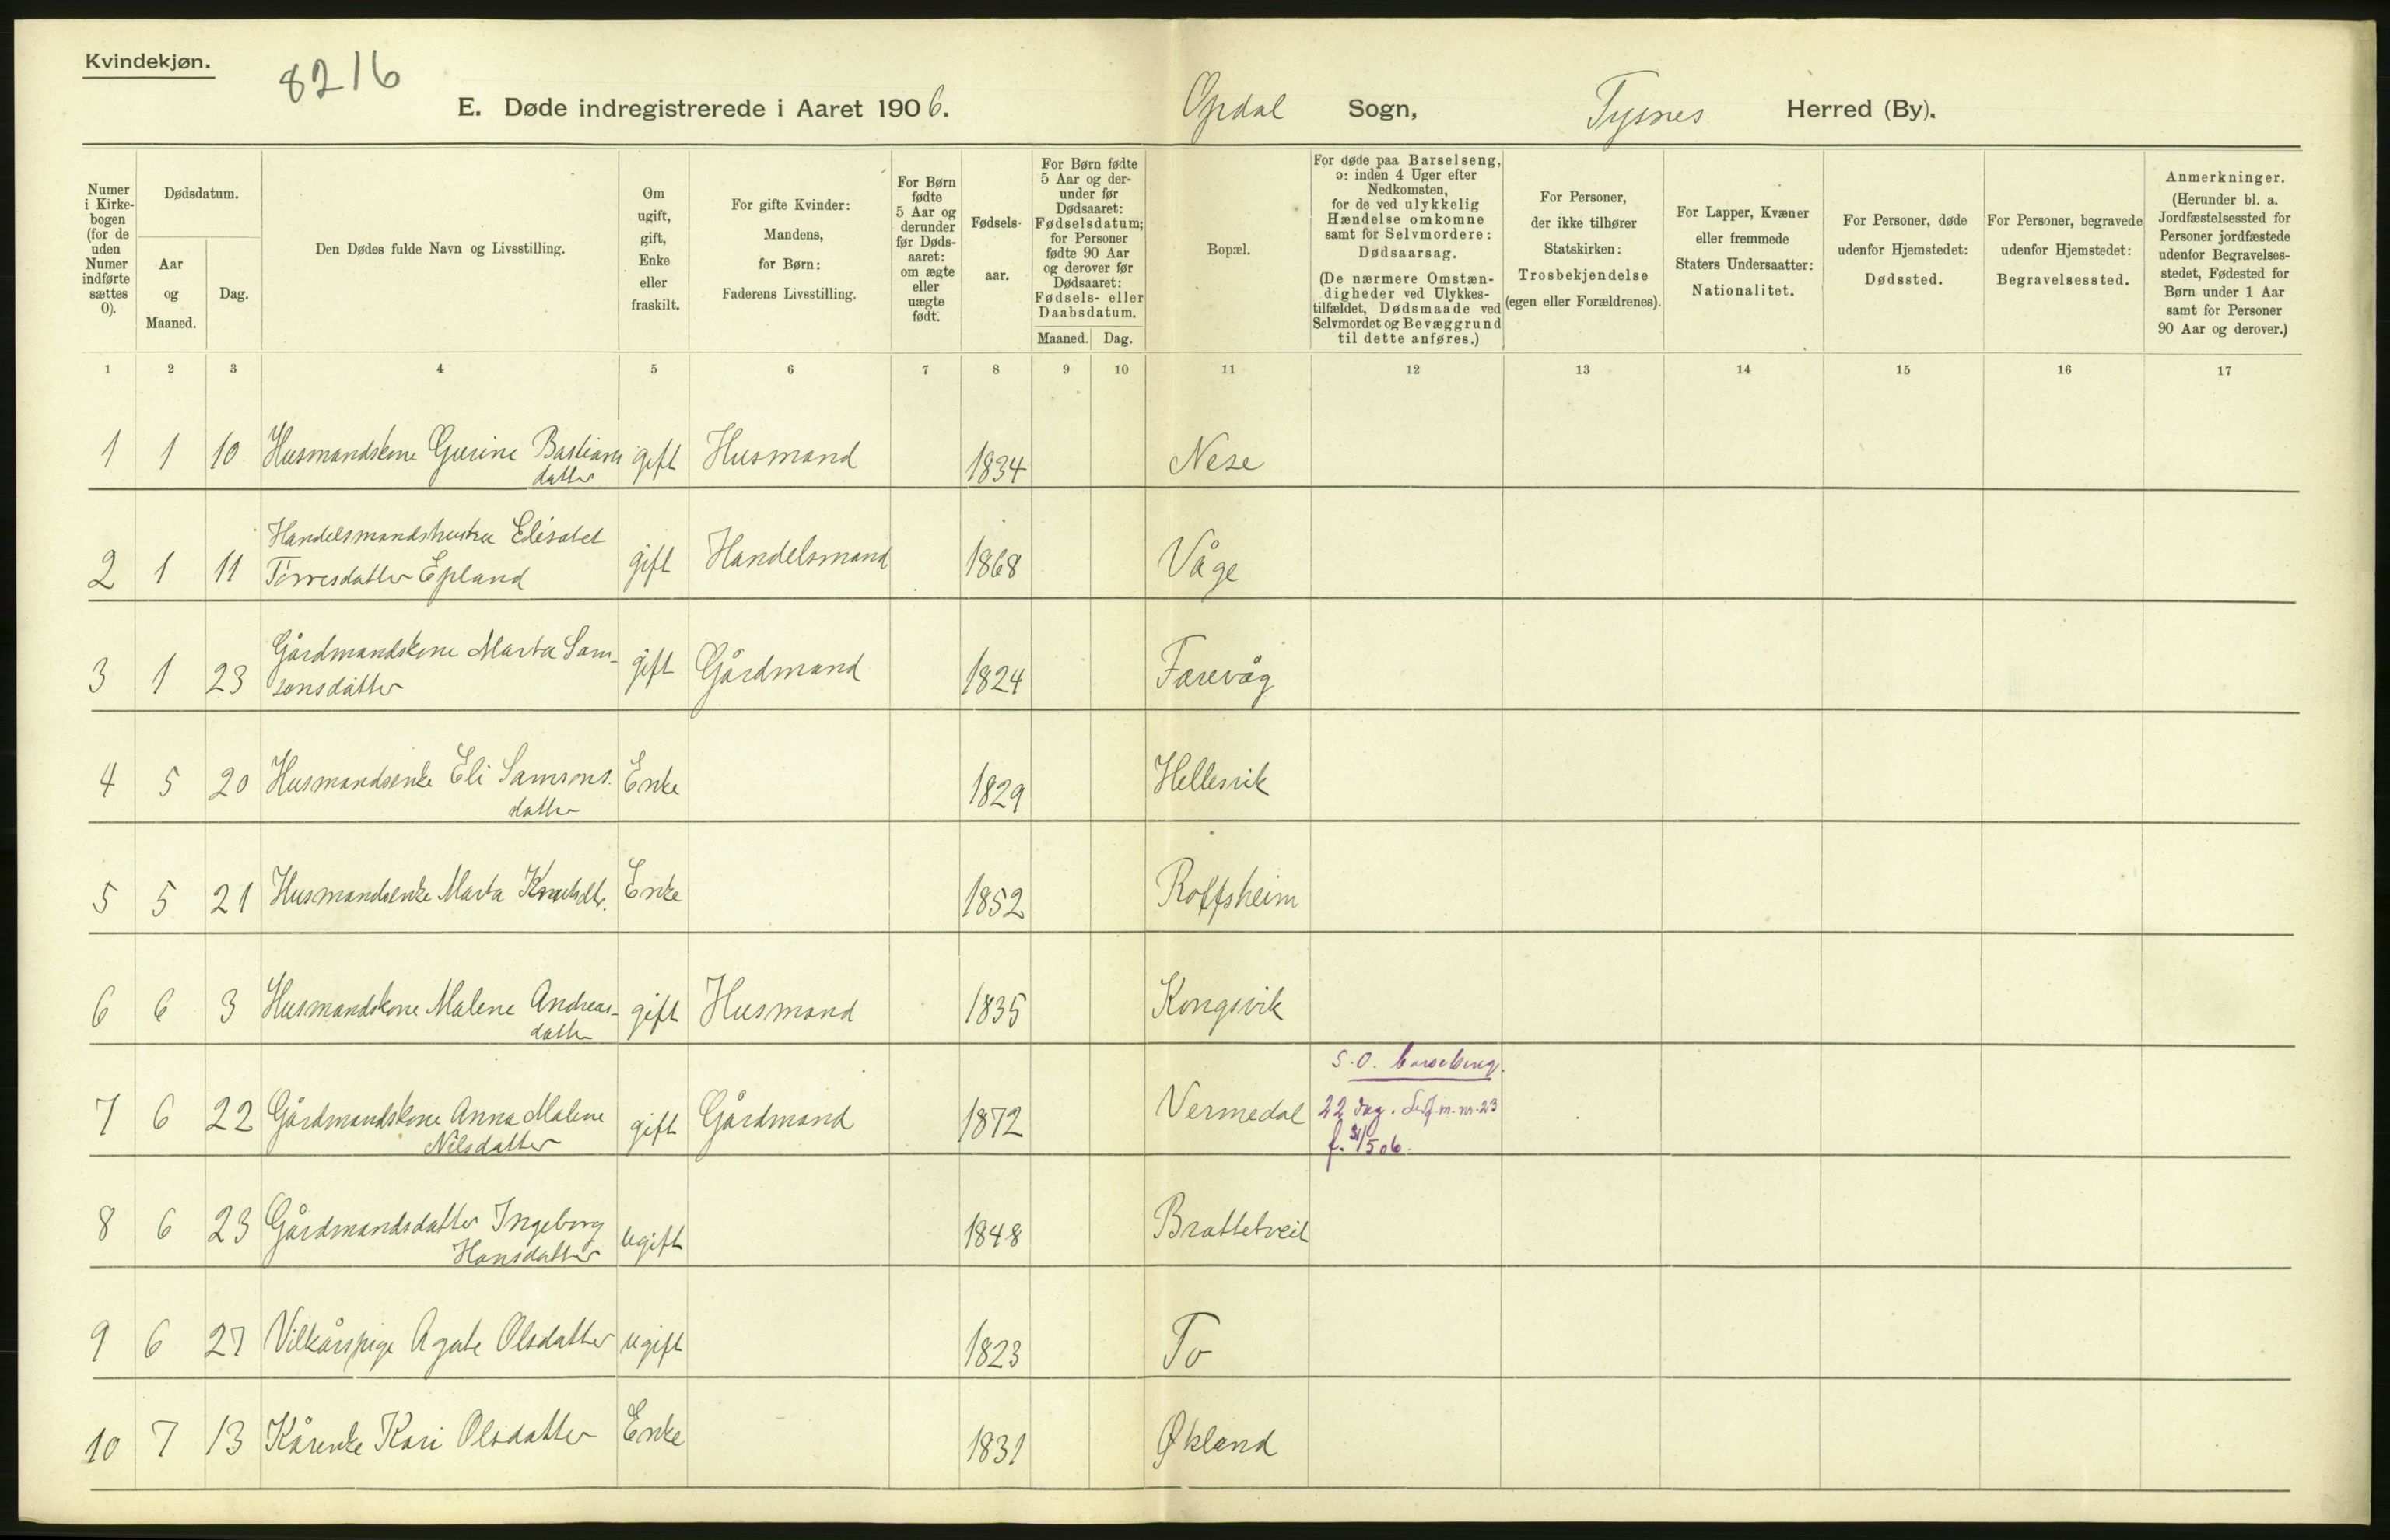 Kvindekjøn.
8216
E. Døde indregistrerede i Aaret 1906. Opdal Sogn, Tysnes Herred (By).
Numer i Kirke-bogen (for de uden Numer indførte sættes 0).
Dødsdatum.
Aar og Maaned.
Dag.
Den Dødes fulde Navn og Livsstilling.
Om ugift, gift, Enke eller fraskilt.
For gifte Kvinder: Mandens, for Børn: Faderens Livsstilling.
For Børn fødte 5 Aar og derunder før Døds-aaret: om ægte eller uægte født.
Fødsels-aar.
For Børn fødte 5 Aar og der-under før Dødsaaret: Fødselsdatum; for Personer fødte 90 Aar og derover før Dødsaaret: Fødsels- eller Daabsdatum.
Maaned. Dag.
Bopæl.
For døde paa Barselseng, ɔ: inden 4 Uger efter Nedkomsten, for de ved ulykkelig Hændelse omkomne samt for Selvmordere: Dødsaarsag.
(De nærmere Omstæn-digheder ved Ulykkes-tilfældet, Dødsmaade ved Selvmordet og Bevæggrund til dette anføres.)
For Personer, der ikke tilhører Statskirken: Trosbekjendelse (egen eller Forældrenes).
For Lapper, Kvæner eller fremmede Staters Undersaatter: Nationalitet.
For Personer, døde udenfor Hjemstedet: Dødssted.
For Personer, begravede udenfor Hjemstedet: Begravelsessted.
Anmerkninger. (Herunder bl. a. Jordfæstelsessted for Personer jordfæstede udenfor Begravelses-stedet, Fødested for Børn under 1 Aar samt for Personer 90 Aar og derover.)
1 2 3 4 5 6 7 8 9 10 11 12 13 14 15 16 17
1 1 10 Husmandskone Gurine Bastians gift Husmand 1834 Nese
datter
Handelsmandshustru Elisabet
2 1 11 Tørresdatter Epland gift Handelsmand 1868 Våge
Gårdmandskone Marta Sam-
3 1 23 sonsdatter gift Gårdmand 1824 Farevåg
4 5 20 Husmandsenke Eli Samsons. Enke 1829 Hellesvik
datter
5 5 21 Husmandsenke Marta Knutsdtr. Enke 1852 Rolfsheim
6 6 3 Husmandskone Malene Andreas- gift Husmand 1835 Kongsvik
datter
S.O. barselseng.
7 6 22 Gårdmandskone Anna Malene gift Gårdmand 1872 Vermedal 22 dag. m. nr. 23
Nilsdatter f. 31/5 06.
8 6 23 Gårdmandsdatter Ingeborg ugift 1848 Brattetveit
Hansdatter
9 6 27 Vilkårspige Agate Olsdatter ugift 1823 To
10 7 13 Kårenke Kari Olsdatter Enke 1831 Økland